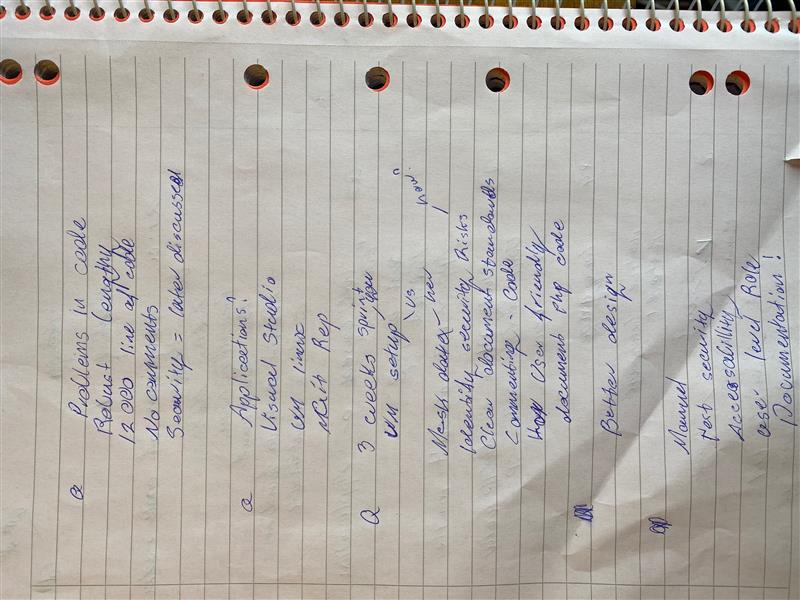 Q Problems in code
Robust lengthy
12000 line of code
No comments
Security = later discussed
Q Applications?
Visual Studio
VM linux
Git Rep
Q 3 weeks sprint
VM setup vs
new
Identity security Risks
Clean document standards
Commenting - Code
How User friendly
document the code
Better design
Manuel
Net security
user level Role
Documentation!